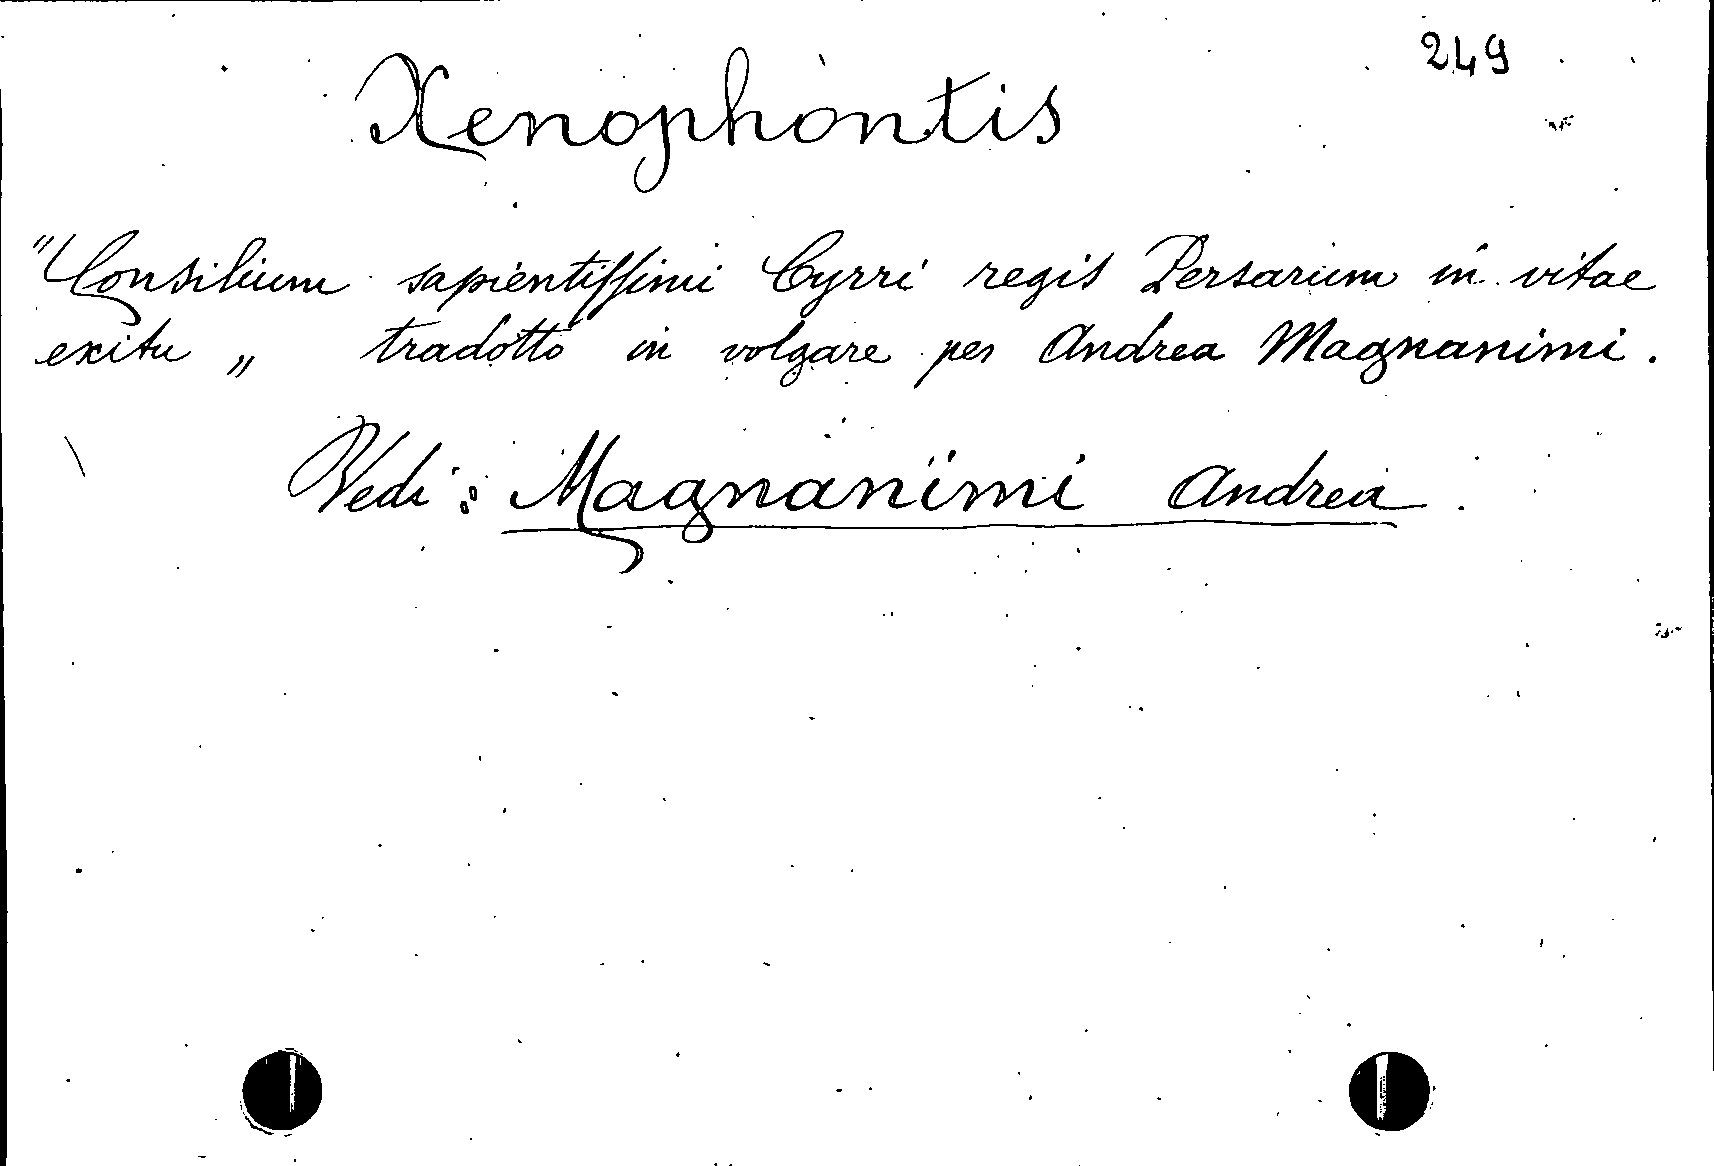 249
Xenophontis
"Consilium sapientissimi Cyrri regis Persarum in vitae
exitu „ tradotto in volgare per Andrea Magnanimi.
Vedi: Magnanimi Andrea.